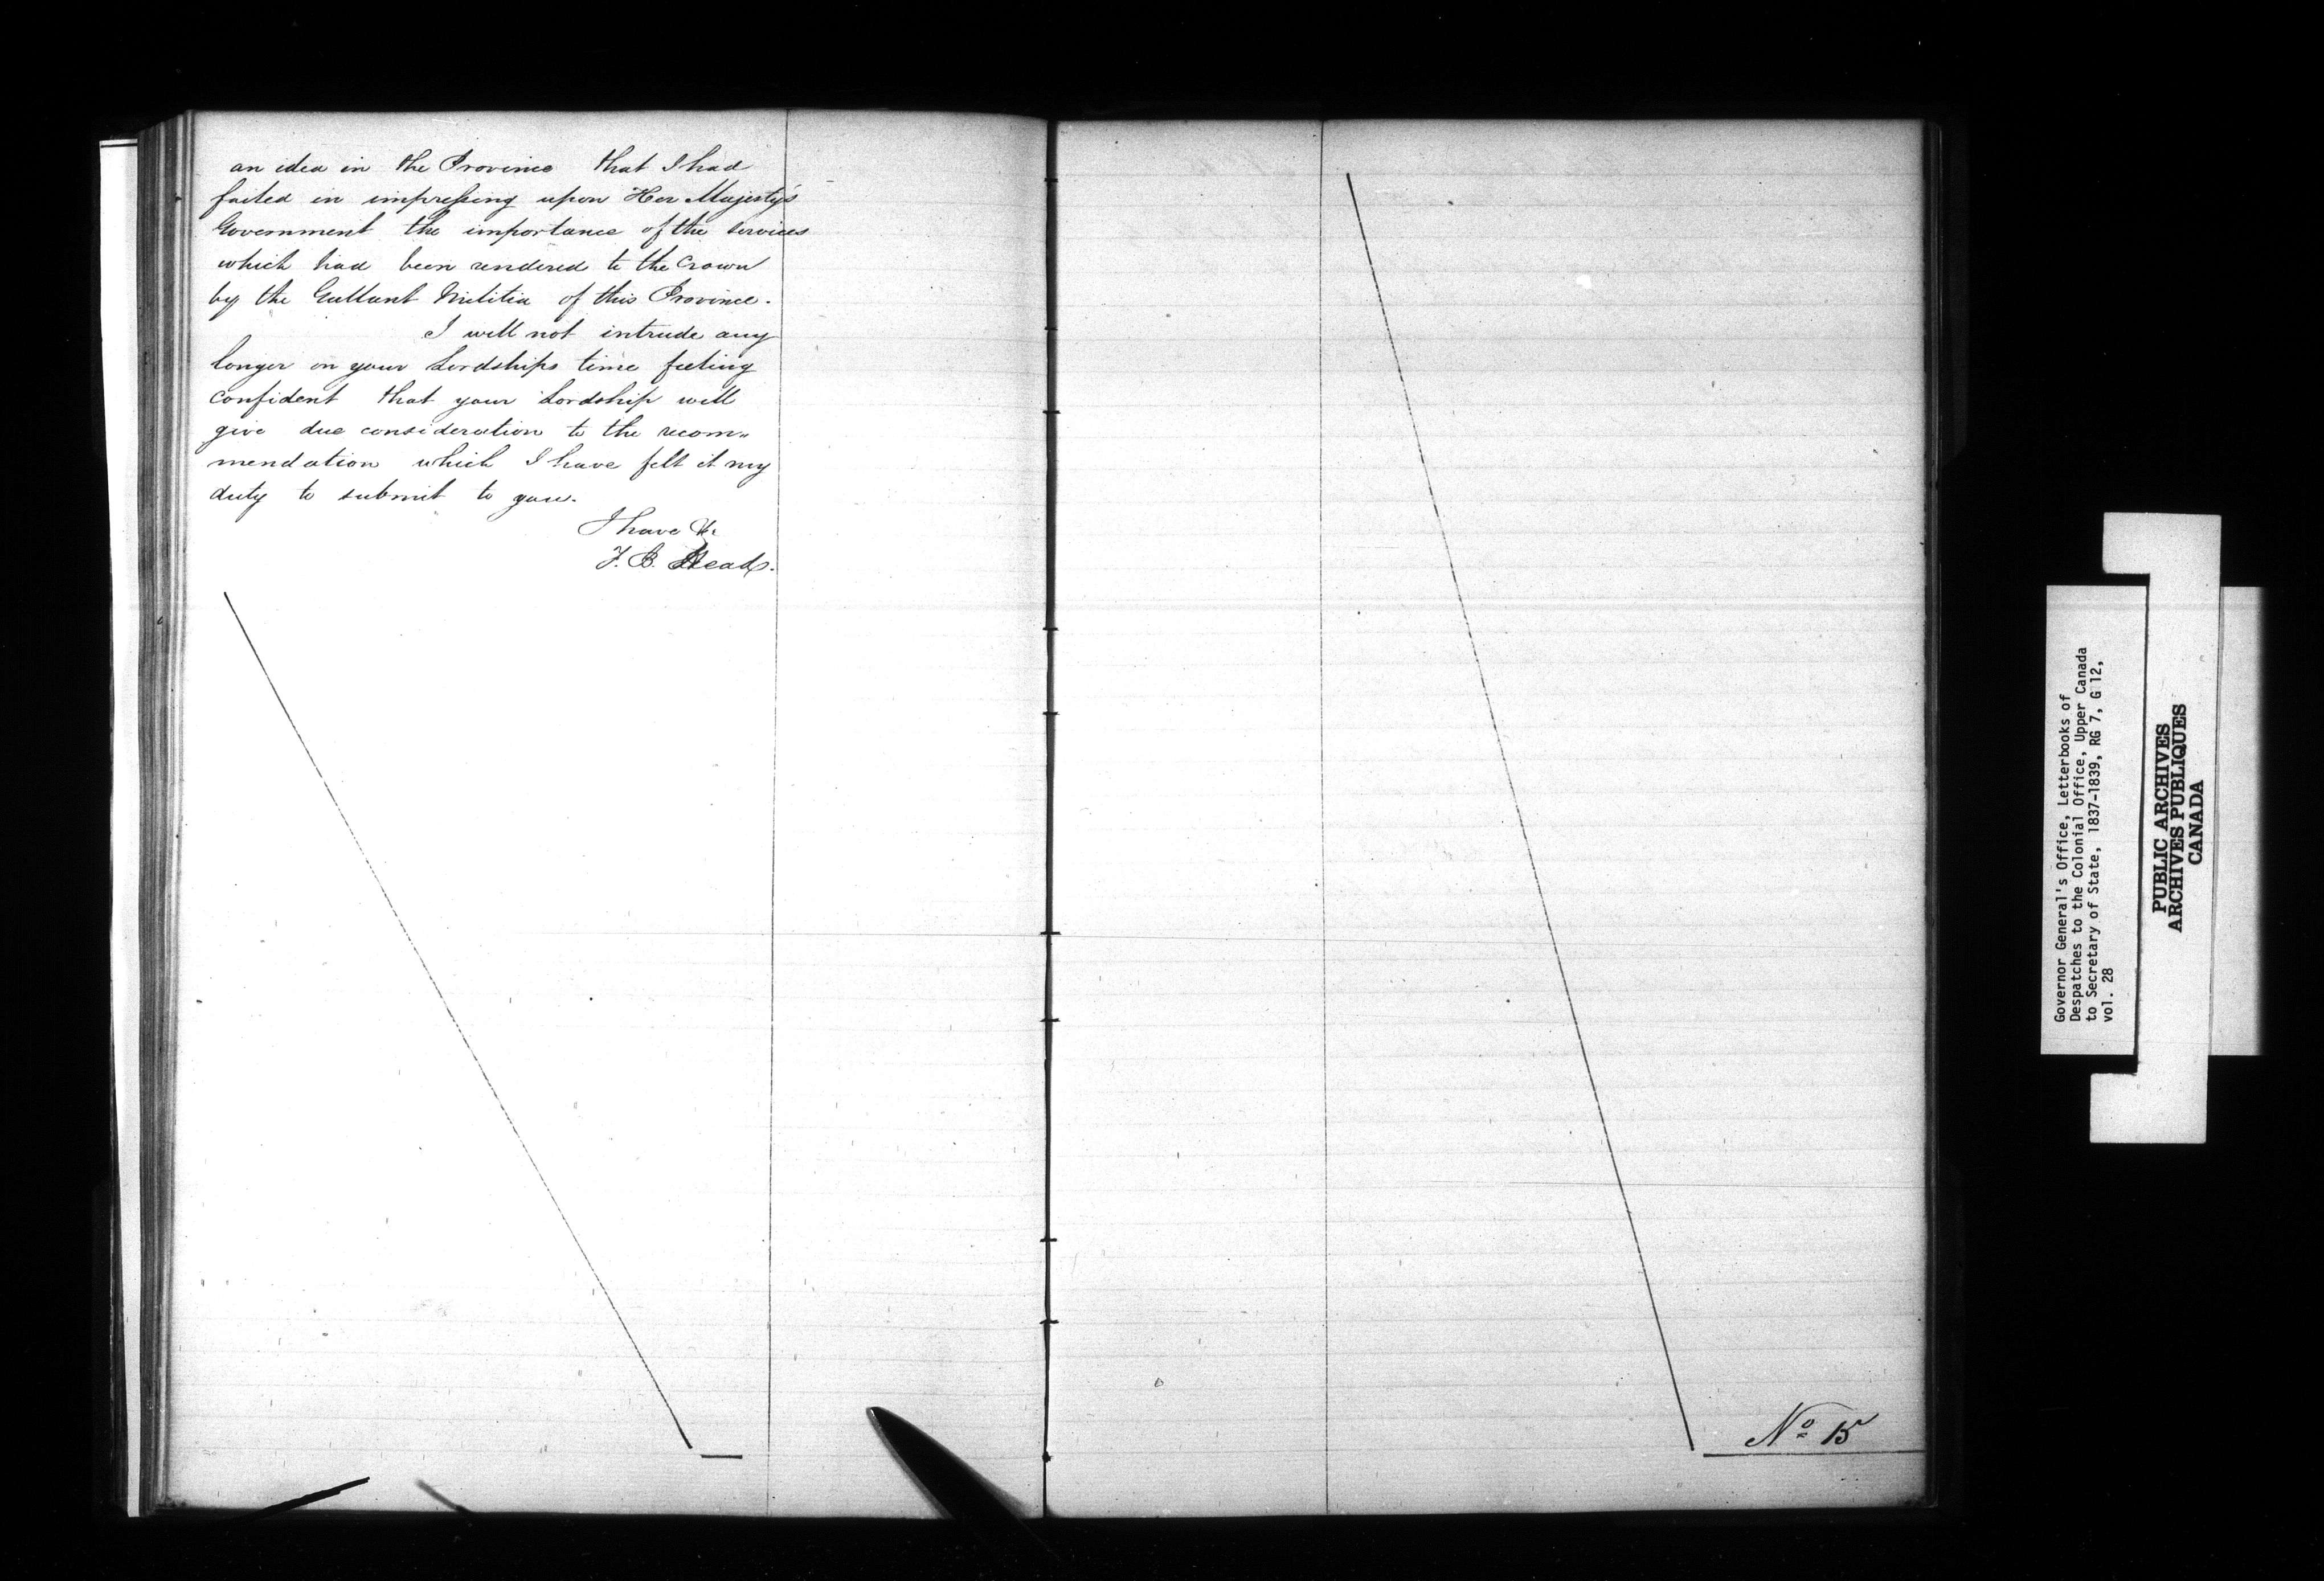 an idea in the Province that I had
failed in impressing upon Her Majesty's
Government the importance of the services
which had been rendered to the Crown
by the Gallant Militia of this Province.
I will not intrude any
longer on your Lordships time feeling
confident that your Lordship will
give due consideration to the recom„
mendation which I have felt it my
duty to submit to you.
I have &c
F. B. Head.
No 15
Governor General's Office, Letterbooks of
Despatches to the Colonial Office, Upper Canada
to Secretary of State, 1837-1839, RG 7, G 12,
vol. 28
PUBLIC ARCHIVES
ARCHIVES PUBLIQUES
CANADA